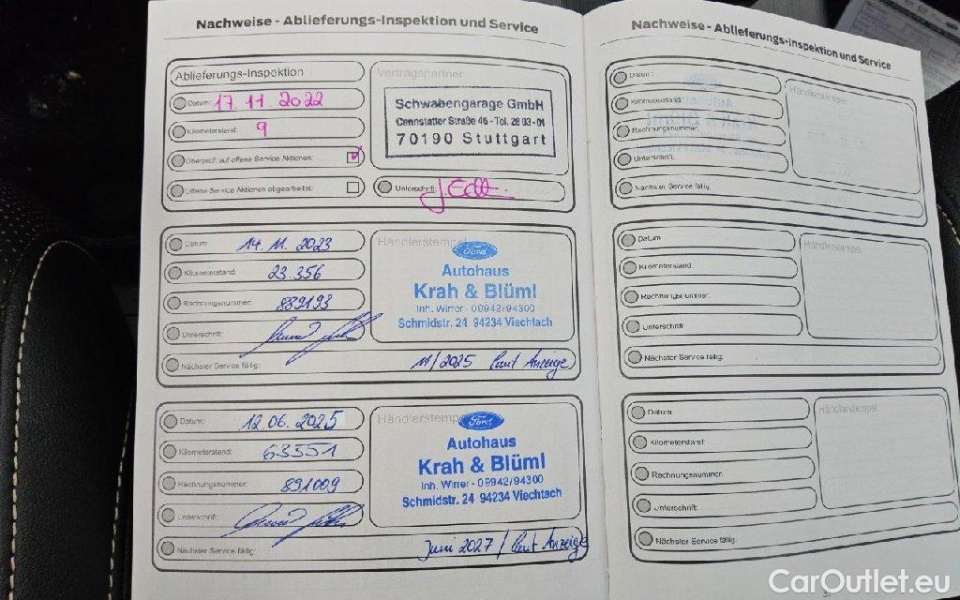 Nachweise - Ablieferungs-Inspektion und Service
Ablieferungs-Inspektion
Datum: 17.11.2022
Kilometerstand: 9
Überprüf. auf offene Service Aktionen:
Offene Service Aktionen abgearbeitet:
Vertragspartner
Schwabengarage GmbH
Cannstatter Straße 46 - Tel. 28 03-01
70190 Stuttgart
Unterschrift:
Datum: 14.11.2023
Kilometerstand: 23.356
Rechnungsnummer: 889193
Unterschrift:
Nächster Service fällig: 11/2025 laut Anzeige
Händlerstempel
Ford
Autohaus
Krah & Blüml
Inh. Wirrer - 09942/94300
Schmidstr. 24 94234 Viechtach
Datum: 12.06.2025
Kilometerstand: 63551
Rechnungsnummer: 891009
Unterschrift:
Nächster Service fällig: Juni 2027 / laut Anzeige
Händlerstempel
Ford
Autohaus
Krah & Blüml
Inh. Wirrer - 09942/94300
Schmidstr. 24 94234 Viechtach
Nachweise - Ablieferungs-Inspektion und Service
Datum:
Kilometerstand:
Rechnungsnummer:
Unterschrift:
Nächster Service fällig:
Händlerstempel
Datum:
Kilometerstand:
Rechnungsnummer:
Unterschrift:
Nächster Service fällig:
Händlerstempel
Datum:
Kilometerstand:
Rechnungsnummer:
Unterschrift:
Nächster Service fällig:
Händlerstempel
CarOutlet.eu